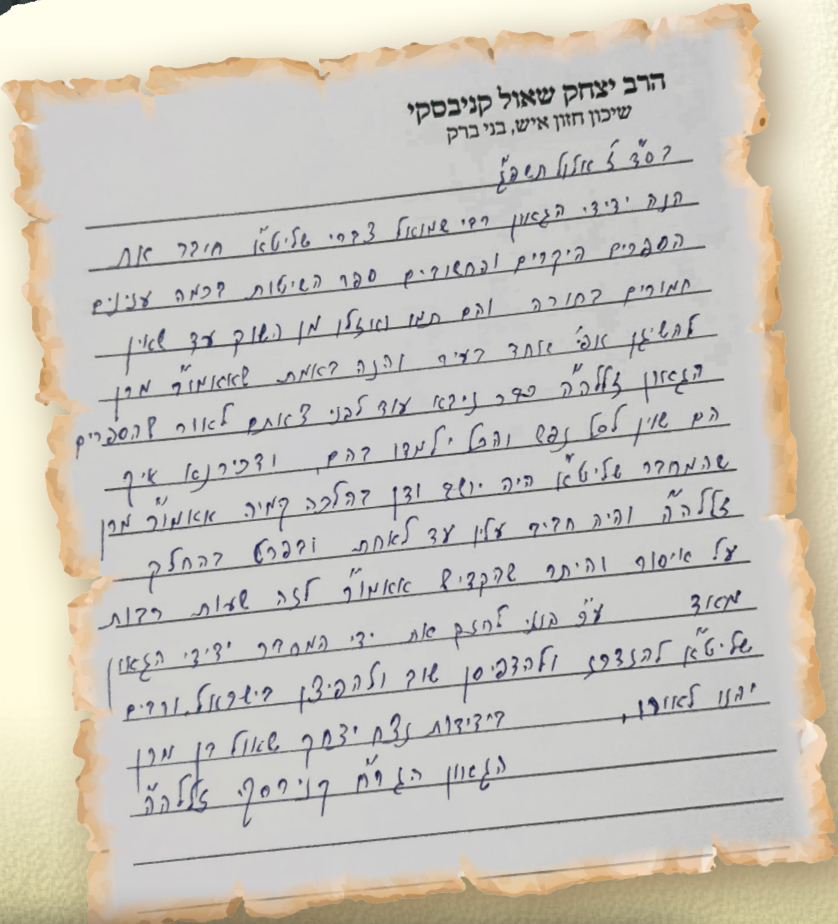 הרב יצחק שאול קניבסקי
שיכון חזון איש, בני ברק
בס"ד ז' אלול תשפ"ג
הנה ידידי הגאון רבי שמואל צברי שליט"א חיבר את
הספרים היקרים והחשובים ספר השיטות בכמה ענינים
חמורים בתורה והם תמו ואזלו מן השוק עד שאין
להשיגן אפי' אחד בעיר והנה באמת שאאמו"ר מרן
הגאון זללה"ה כבר ניבא עוד לפני צאתם לאור שהספרים
הם שוין לכל נפש והכל ילמדו בהם, ודכירנא איך
שהמחבר שליט"א היה יושב ודן בהלכה קמיה אאמו"ר מרן
זללה"ה והיה חביב עליו עד לאחת ובפרט בהחלק
על איסור והיתר שהקדיש אאמו"ר לזה שעות רבות
מאוד ע"כ בואי לחזק את ידי המחבר ידידי הגאון
שליט"א להזדרז ולהדפיסן שוב ולהפיצן בישראל, ורבים
יהנו לאורו, בידידות נצח יצחק שאול בן מרן
הגאון הגר"ח קניבסקי זללה"ה